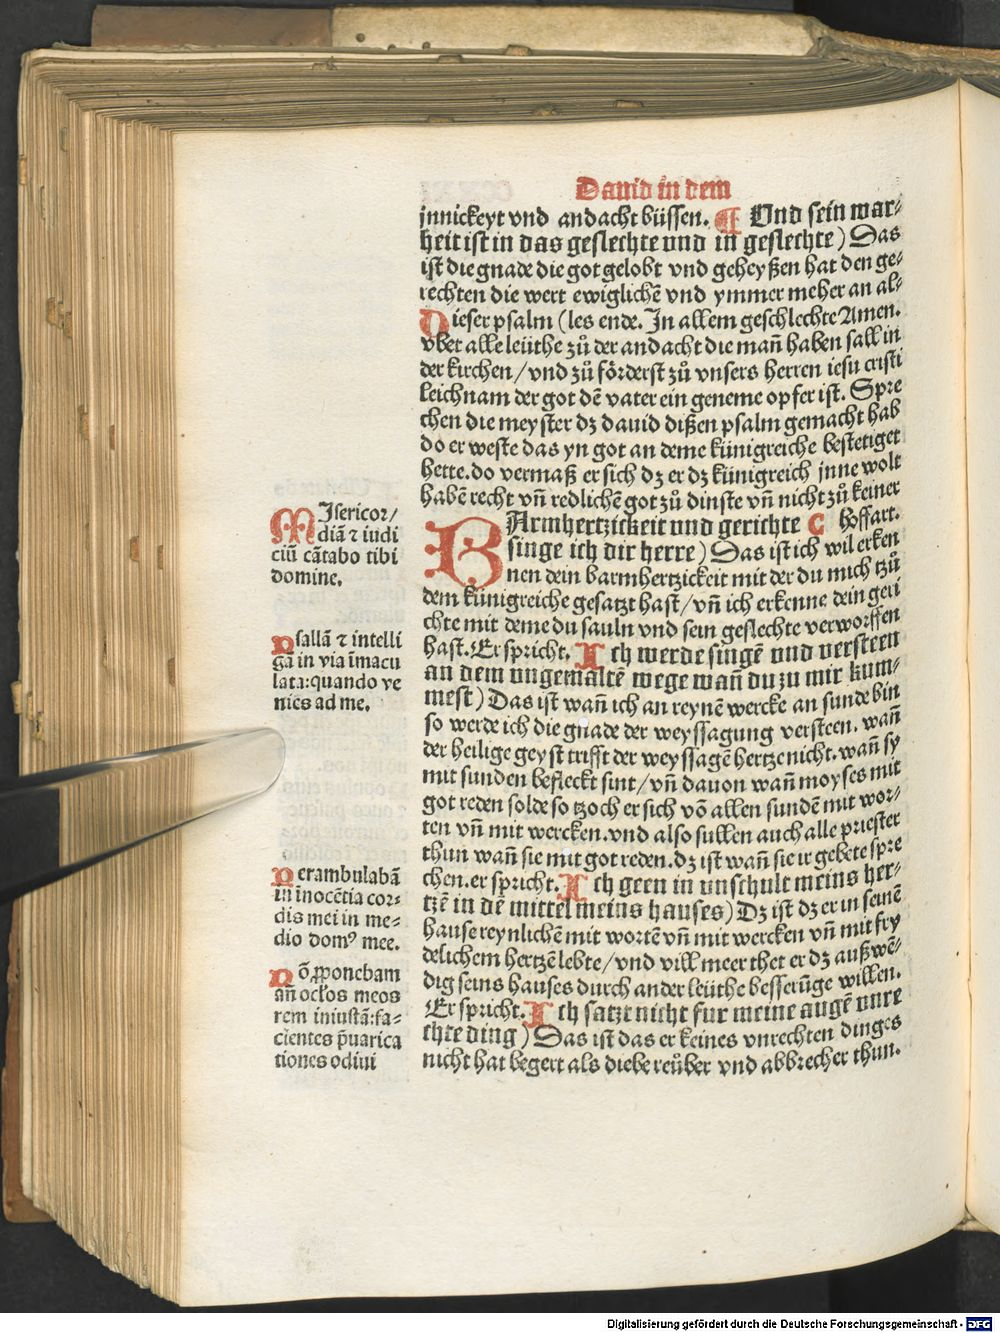 Dauid in dem
jnnickeyt vnd andacht büssen. ¶ Vnd sein war⸗
heit ist in das geslechte vnd in geslechte) Das
ist die gnade die got gelobt vnd geheyßen hat den ge⸗
rechten die wert ewiglichē vnd ymmer meher an al⸗
Dieser psalm (les ende. In allem geschlechte Amen.
vber alle leüthe zů der andacht die mañ haben sall in
der kirchen/vnd zů förderst zů vnsers herren iesu cristi
leichnam der got dē vater ein geneme opfer ist. Spre
chen die meyster dz dauid dißen psalm gemacht hab
do er weste das yn got an deme künigreiche bestetiget
hette. do vermaß er sich dz er dz künigreich jnne wolt
habē recht vñ redlichē got zů dinste vñ nicht zů keiner
BArmhertzickeit vnd gerichte C hoffart.
singe ich dir herre) Das ist ich wil erken
nen dein barmhertzickeit mit der du mich tzů
dem künigreiche gesatzt hast/vñ ich erkenne dein geri
chte mit deme du sauln vnd sein geslechte verworffen
hast. Er spricht. Ich werde singē vnd versteen
an dem vngemaltē wege wañ du zu mir kum⸗
mest) Das ist wañ ich an reynē wercke an sunde bin
so werde ich die gnade der weyssagung versteen. wañ
der heilige geyst trifft der weyssagē hertze nicht. wañ sy
mit sunden befleckt sint/vñ dauon wañ moyses mit
got reden solde so tzoch er sich vō allen sundē mit wor⸗
ten vñ mit wercken. vnd also sullen auch alle priester
thun wañ sie mit got reden. dz ist wañ sie ir gebete spre
chen. er spricht. Ich geen in vnschult meins her⸗
tzē in dē mittel meins hauses) Dz ist dz er in seinē
hause reynlichē mit wortē vñ mit wercken vñ mit fry
delichem hertzē lebte/vnd vill meer thet er dz außwē⸗
dig seins hauses durch ander leüthe besserūge willen.
Er spricht. Ich satzt nicht fur meine augē vnre
chte ding) Das ist das er keines vnrechten dinges
nicht hat begert als diebe reůber vnd abbrecher thun.
MIsericor/
diā ⁊ iudi
ciū cātabo tibi
domine.
Psallā ⁊ intelli
gā in via īmacu
lata: quando ve
nies ad me.
Perambulabā
in īnocētia cor⸗
dis mei in me⸗
dio domꝰ mee.
Nō ꝓponebam
añ oclos meos
rem iniustā: fa⸗
cientes p̄uarica
tiones odiui
Digitalisierung gefördert durch die Deutsche Forschungsgemeinschaft - DFG